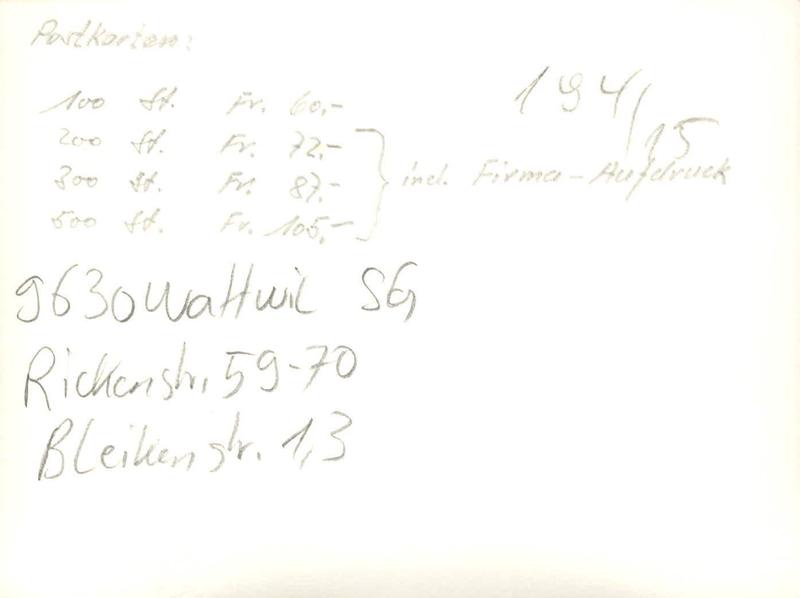 Postkarten:
100 St. Fr. 60.-
200 St. Fr. 72.-
300 St. Fr. 87.-
500 St. Fr. 105.-
incl. Firma-Aufdruck
194/15
9630 Wattwil SG
Rickenstr. 59-70
Bleikenstr. 1,3